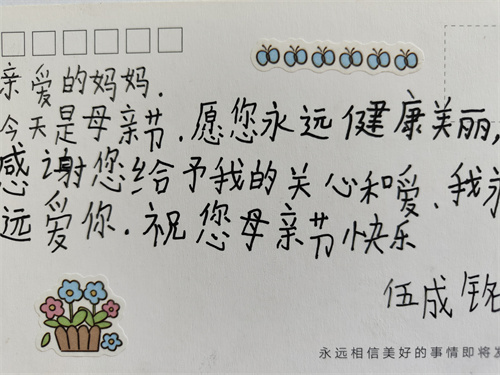 亲爱的妈妈.
今天是母亲节.愿您永远健康美丽,
感谢您给予我的关心和爱.我永
远爱你.祝您母亲节快乐
伍成铭
永远相信美好的事情即将发